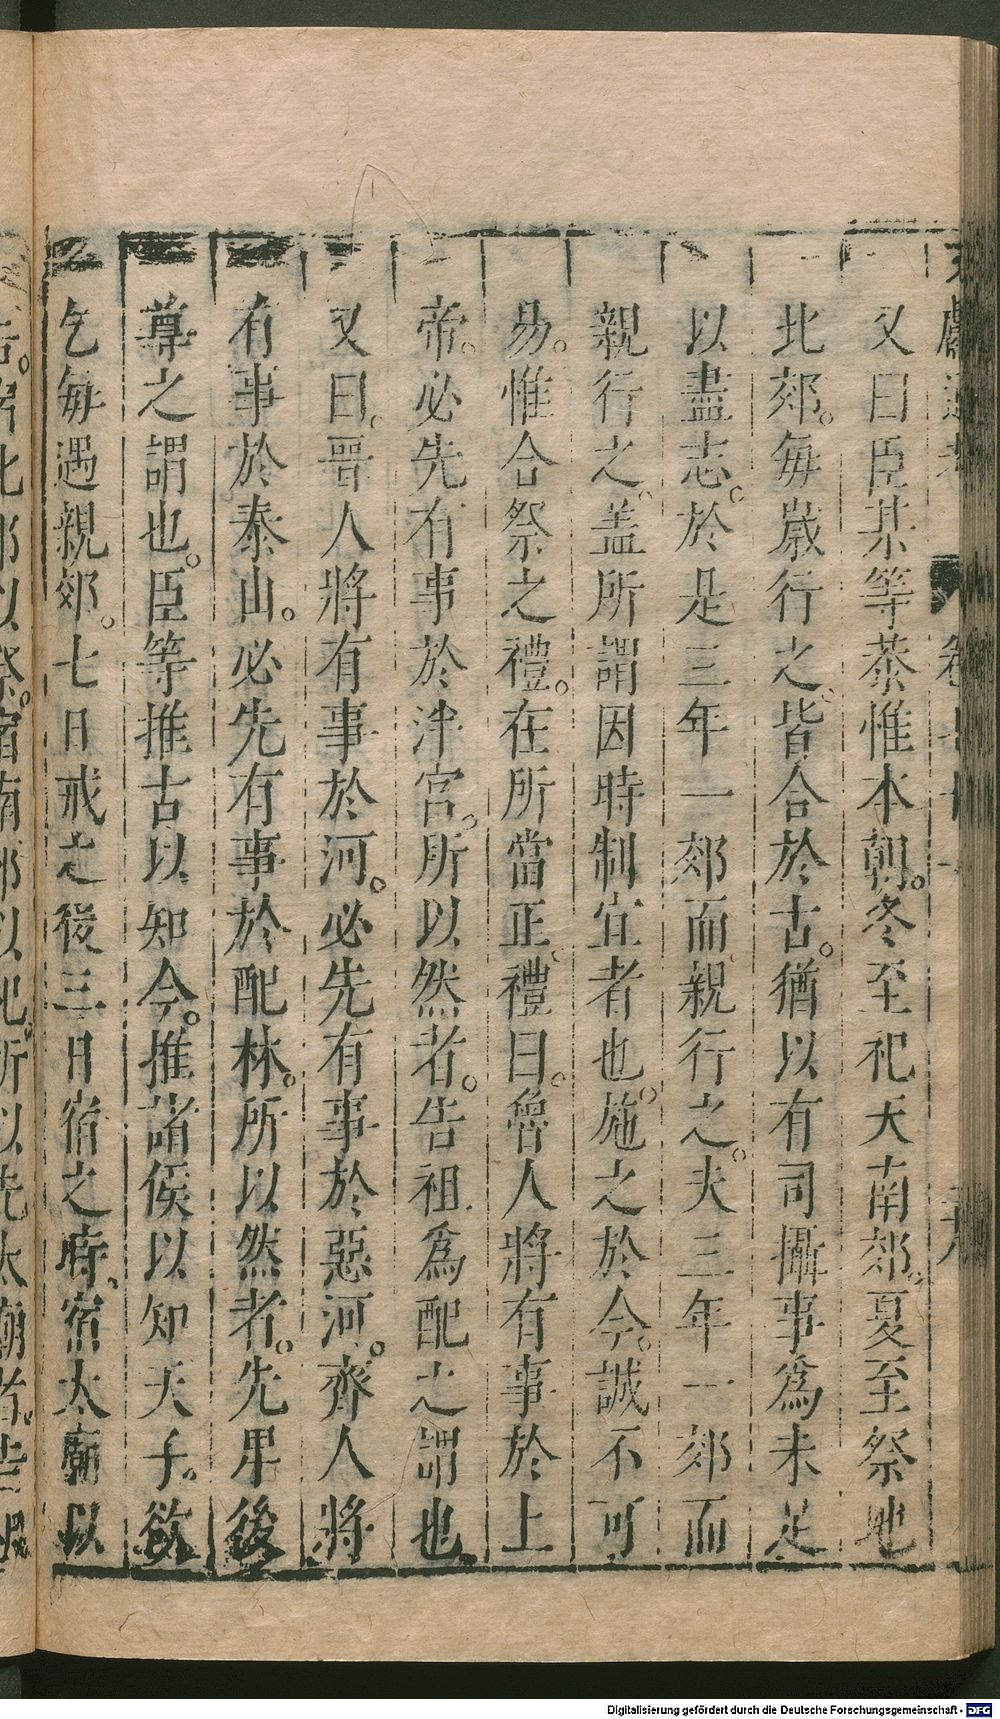 又曰臣某等恭惟本朝。冬至祀天南郊。夏至祭地
北郊。每歲行之、皆合於古。猶以有司攝事爲未足
以盡志。於是三年一郊而親行之。夫三年一郊而
親行之。盖所謂因時制宜者也。施之於今。誠不可
易。惟合祭之禮。在所當正、禮曰。魯人將有事於上
帝。必先有事於泮宮。所以然者。告祖爲配之謂也
又曰。晋人將有事於河。必先有事於惡河。齊人將
有事於泰山。必先有事於配林。所以然者。先卑後
尊之謂也。臣等推古以知今。推諸侯以知天子。欲
乞每遇親郊。七日戒之後三日宿之時、宿太廟以
Digitalisierung gefördert durch die Deutsche Forschungsgemeinschaft - DFG